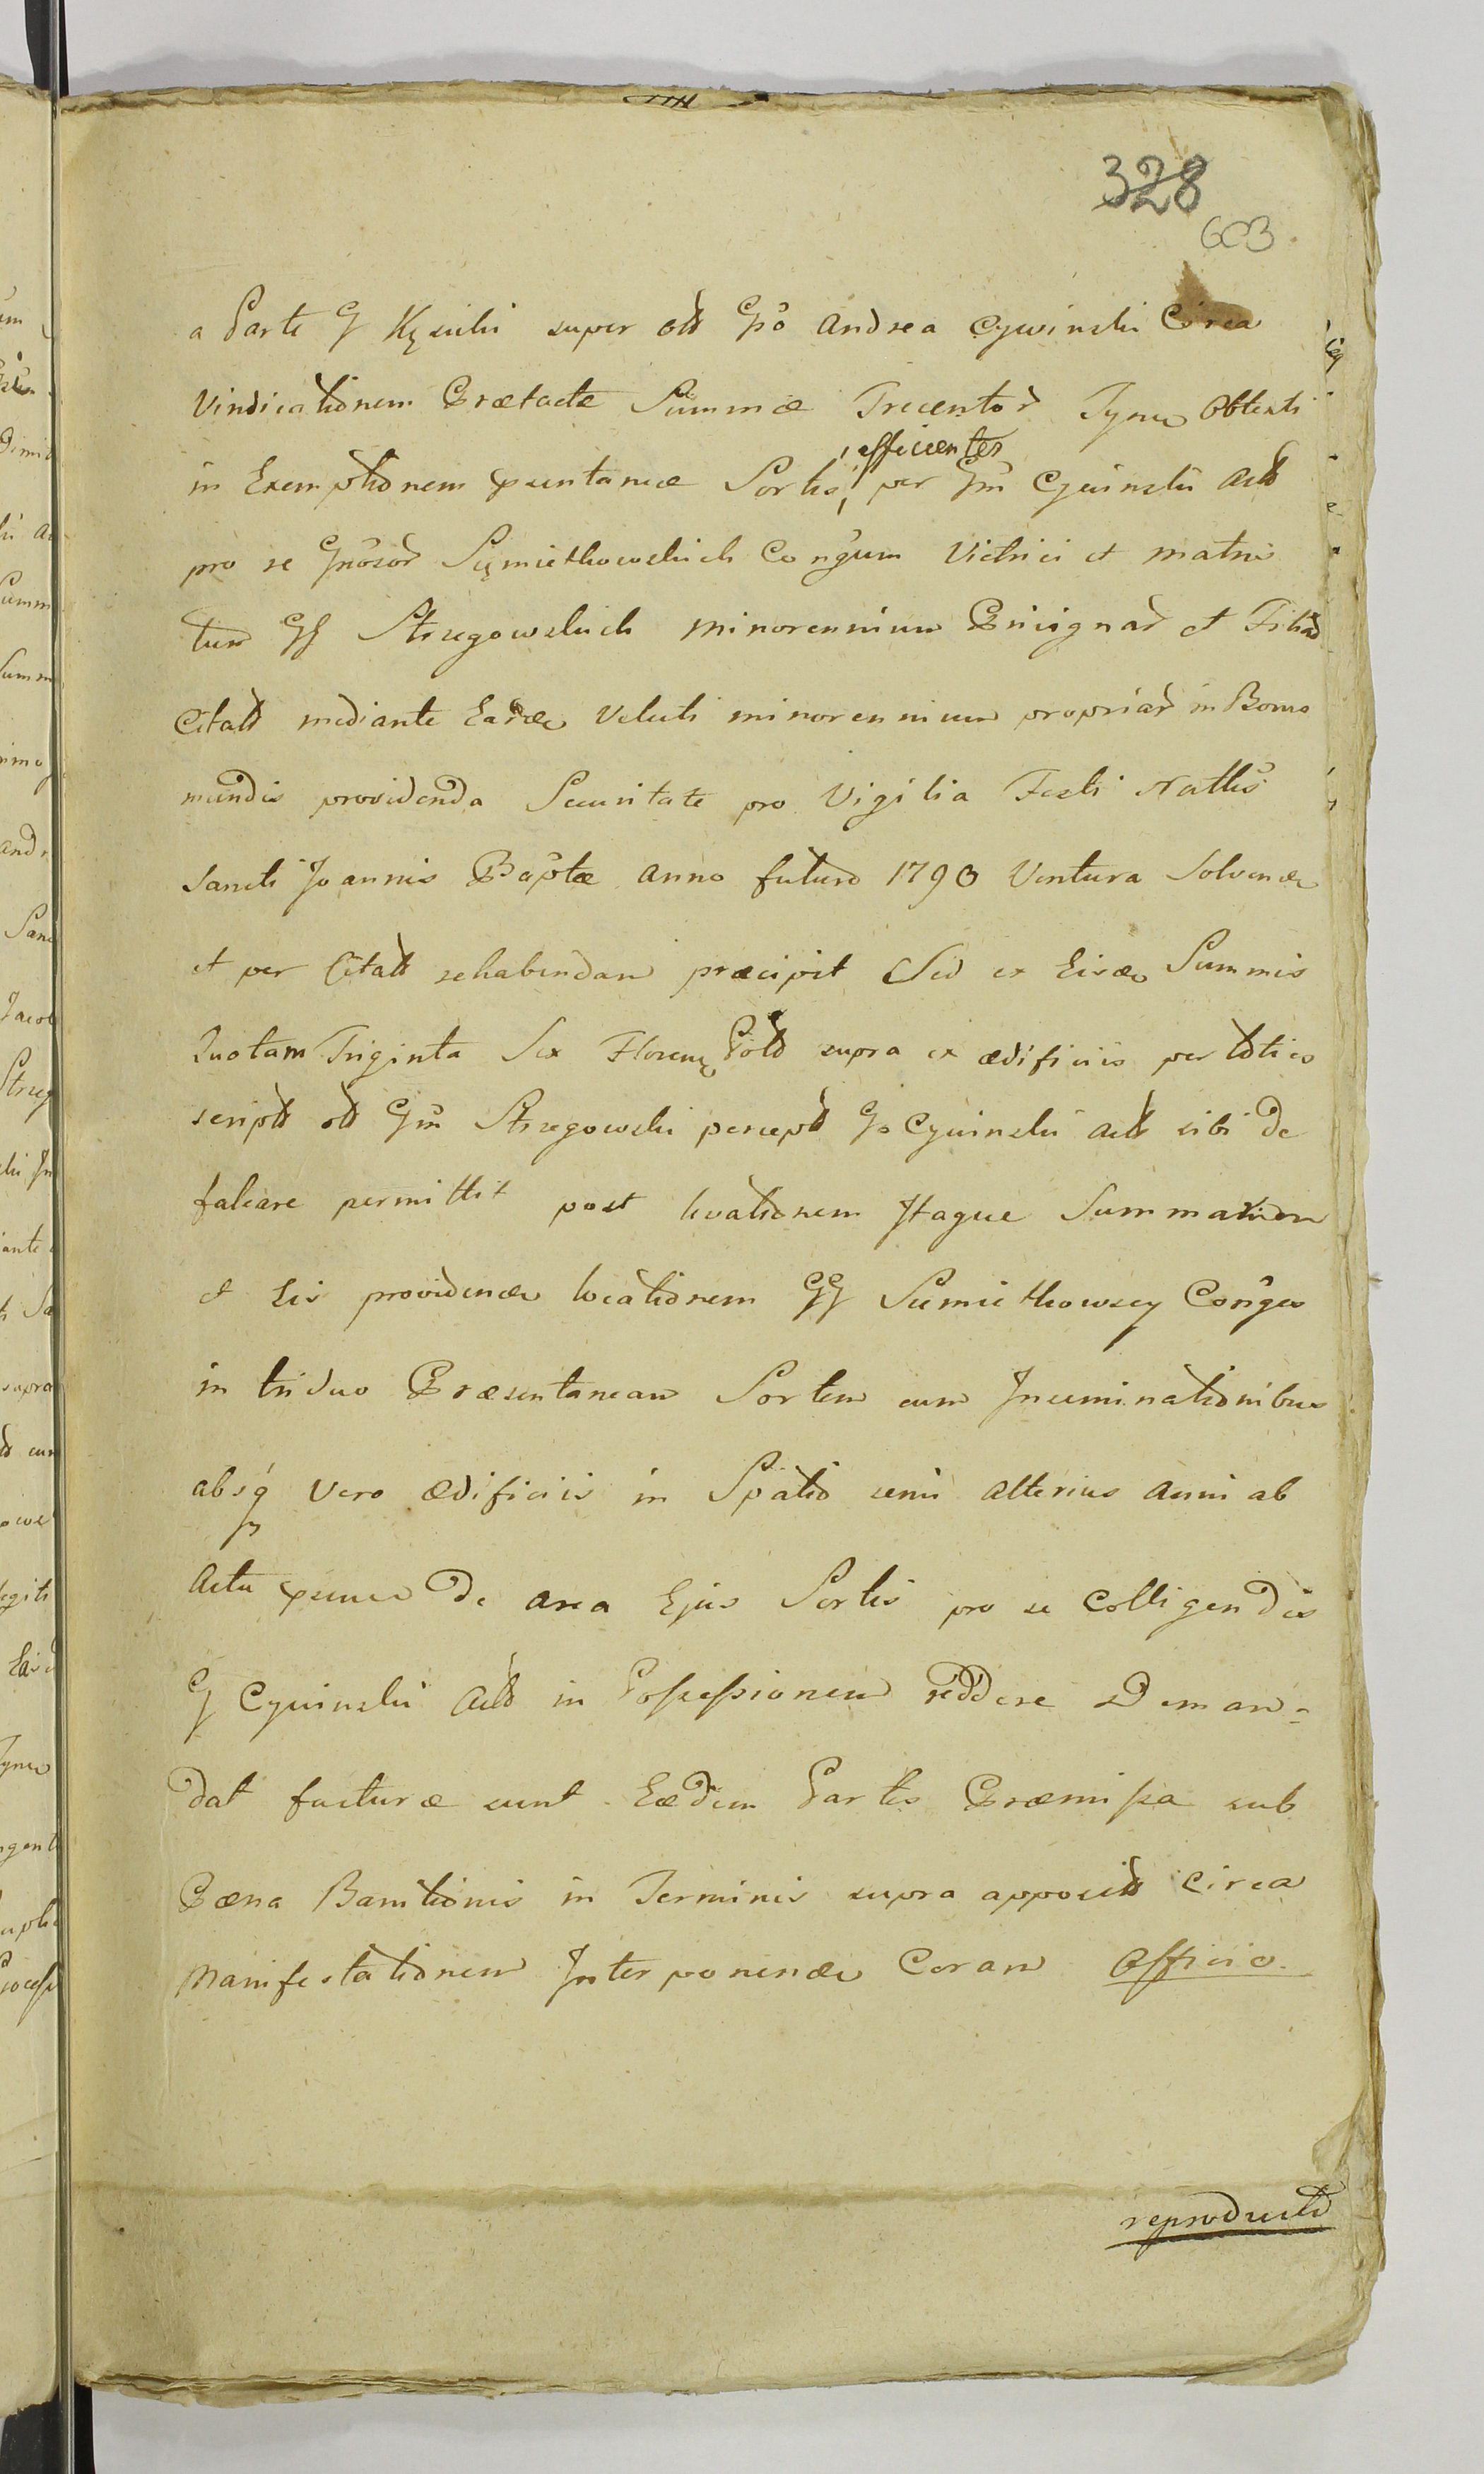 328
603
a Parte G Kęsicki super olt Gso Andrea Cywinski Circa
Vindicationem Prætactæ Summæ Trecentor Tynw Obtenti
in Exemptionem pxntaneæ Sortis, efficienter per Gm Cywinski Actt
pro se Gnosor Sęmiethowskich Congum Victrici et matri
tum GG Strzegowskich minorennium Privignar et Filiar
Citatt mediante Eardem Veluti minorennium propriar in Bonis
mundis providenda Securitate pro Vigilia Festi Nattis
Sancti Joannis Baptæ Anno futuro 1790 Ventura Solvenda
et per Citatt rehabendam præcipit Sed ex Eisdem Summis
Quotam Triginta Sex Floreny Poltt supra ex ædificiis per toties
scriptt olt Gm Strzegowski percept Go Cywinski Actt sibi De
falcare permittit post levationem Itaque Summarum
et Eis providenda locationem GG Sumiethowscy Conges
in triduo Præsentaneam Sortem cum Inseminationibus
absq vero ædificiis in Spatio semi Alterius Anni ab
Actu pxnti De area Ejus Sortis pro se Colligendis
G Cywinski Actt in Possessionem reddere Deman=
dat facturæ sunt Eædem Partes Præmissa sub
Pæna Banitionis in Terminis supra appositt Circa
Manifestationem Interponenda Coram Officio.
reproductt